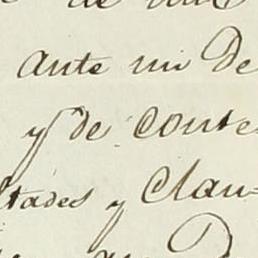 de
ante mi De
y de conte
ltades y Clau=